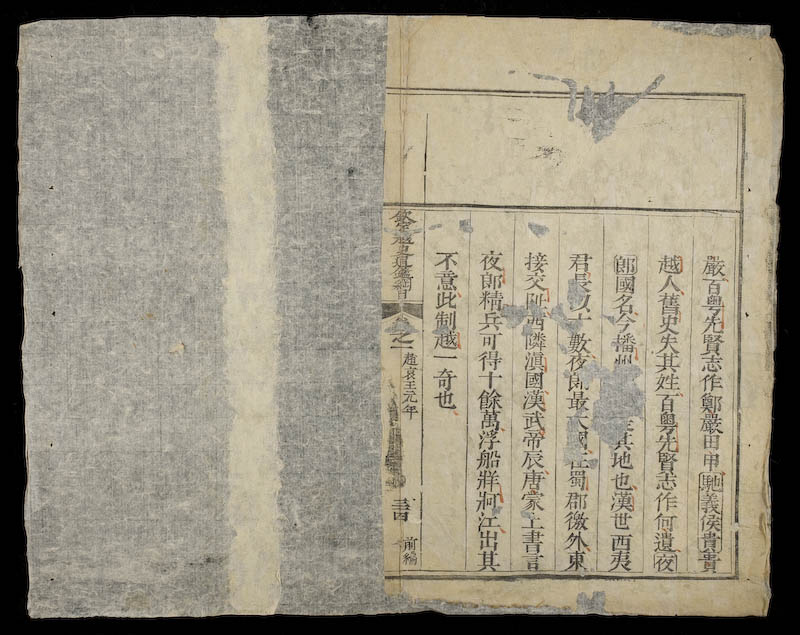 嚴百粤先賢志作鄭嚴田甲馳義侯貴貴
越人舊史失其姓百粤先賢志作何遺夜
郎國名今播州其地也漢世西夷
君長以十數夜郎最大國在蜀郡徼外東
接交阯西隣滇國漢武帝辰唐蒙上書言
夜郎精兵可得十餘萬浮船牂牁江出其
不意此制越一奇也
欽定越史通鑑綱目
卷之一
趙哀王元年
前編